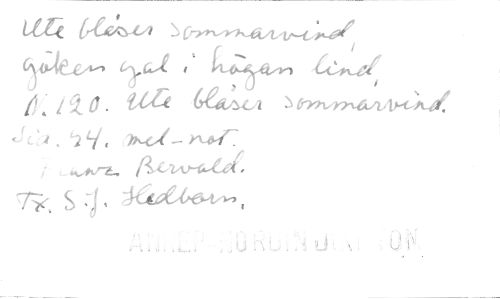 Ute blåser sommarvind,
göken gal i högan lind,
N. 120. Ute blåser sommarvind.
Sid. 44. mel-not.
Franz Berwald.
Tx. S.J. Hedborn.